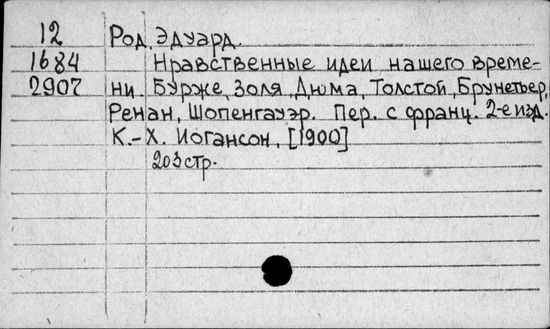 12 Род, Эдуард.
1684 Нравственные идеи нашего време-
2907 ни. Бурже, Золя, Дюма, Толстой, Брунетьер,
Ренан, Шопенгауэр. Пер. с франц. 2-е изд.
К.-Х. Иогансон, [1900]
203 стр.